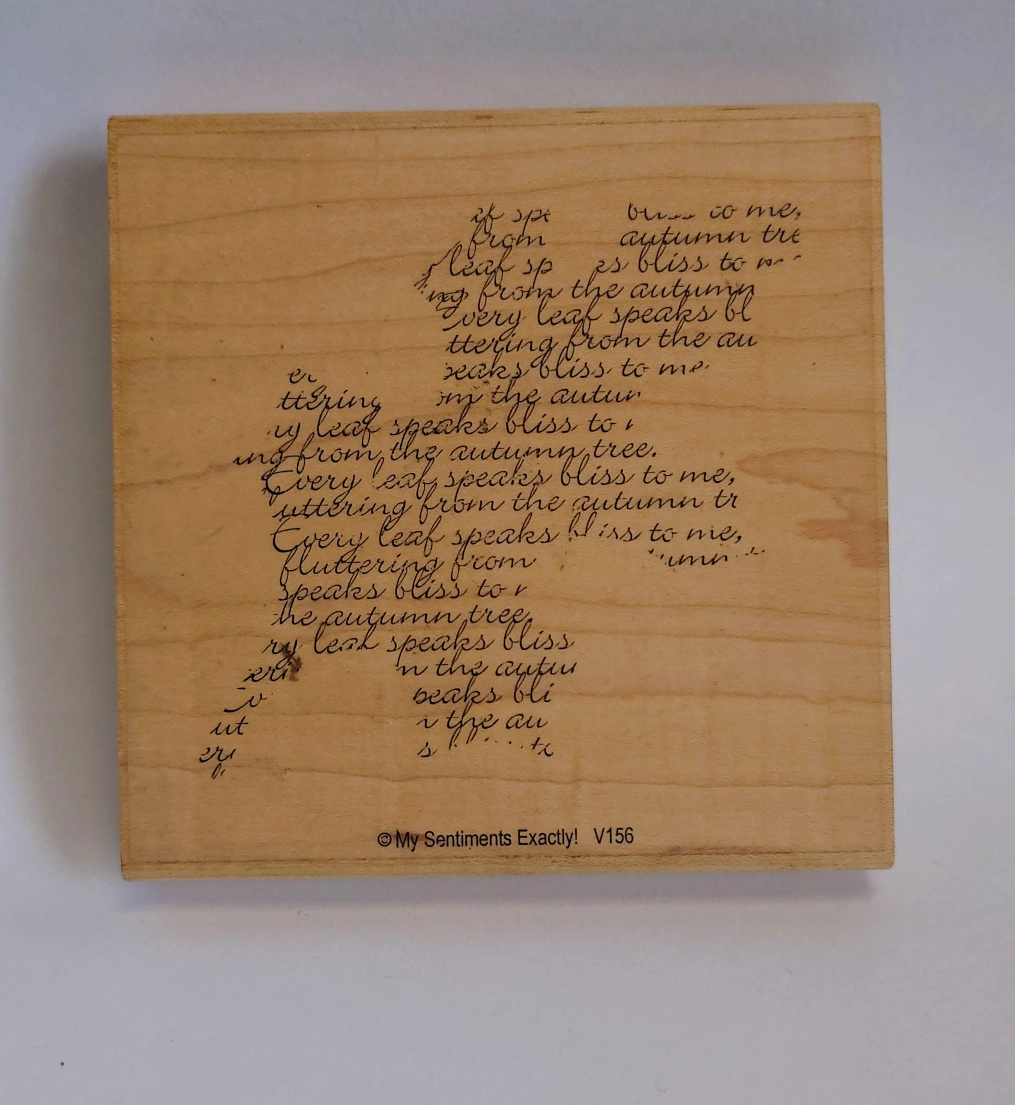 af spe bliss to me,
from autumn tre
leaf sp es bliss to
ing from the autumn
Every leaf speaks bl
ttering from the au
peaks bliss to me
er
ttering om the autu
ry leaf speaks bliss to
ing from the autumn tree.
Every leaf speaks bliss to me,
uttering from the autumn tr
Every leaf speaks bliss to me,
fluttering from umn
speaks bliss to
the autumn tree
ry leaf speaks bliss
eri n the autu
o peaks bli
ut the au
eri s
©My Sentiments Exactly! V156